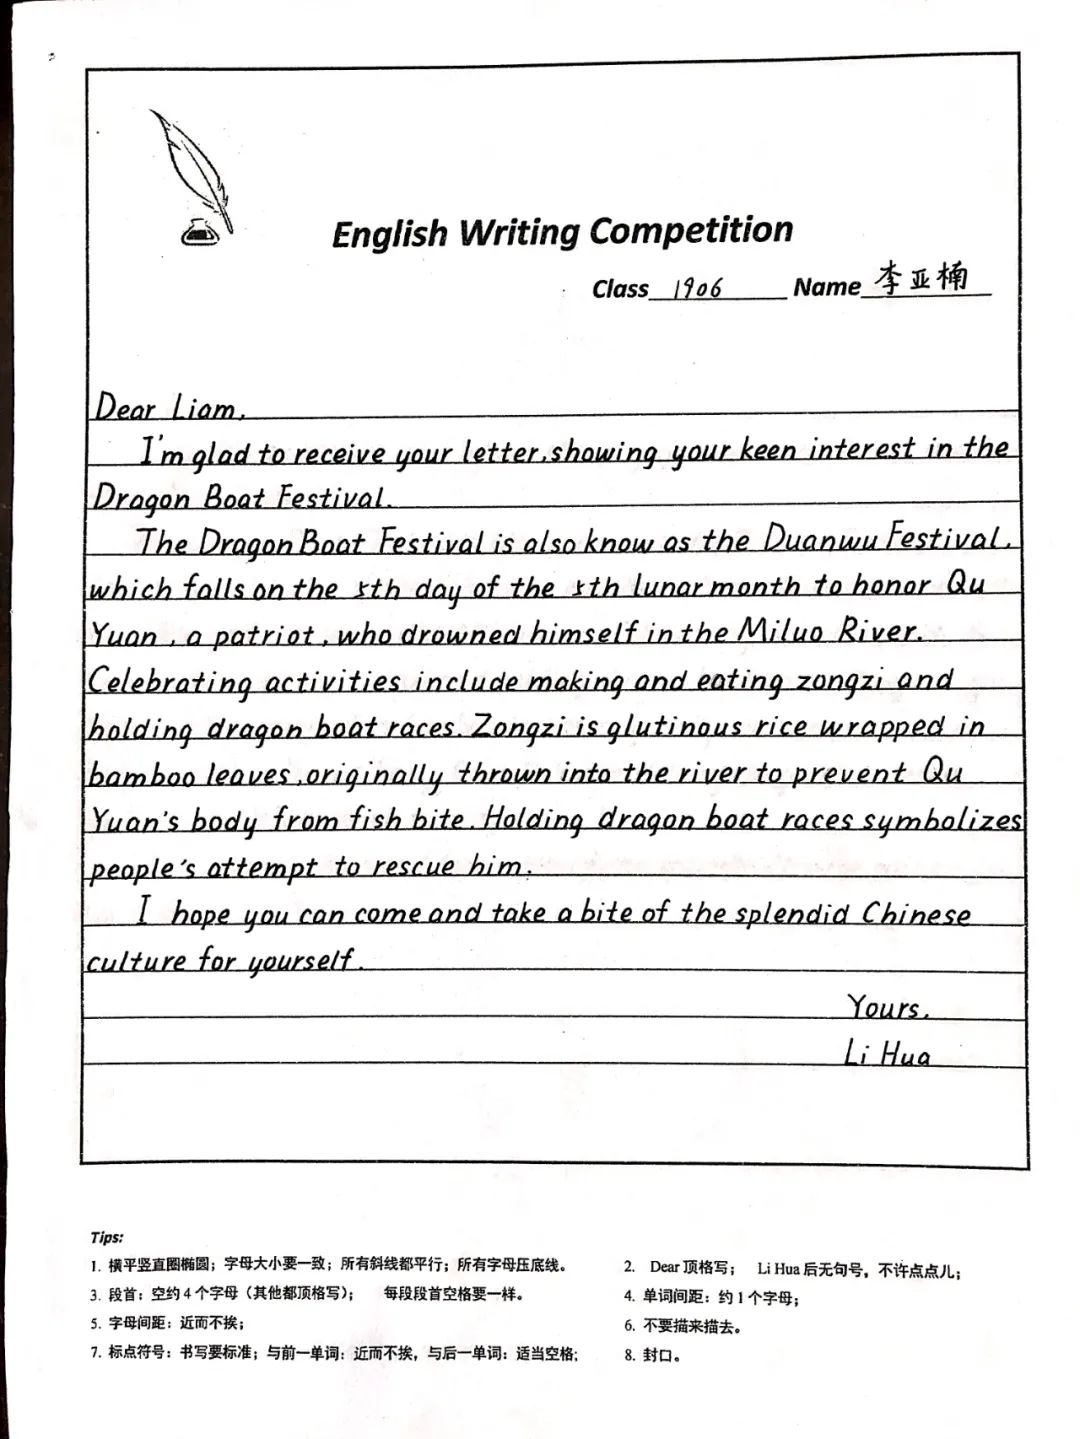 English Writing Competition
Class 1906 Name 李亚楠
Dear Liam,
I'm glad to receive your letter, showing your keen interest in the
Dragon Boat Festival.
The Dragon Boat Festival is also know as the Duanwu Festival,
which falls on the 5th day of the 5th lunar month to honor Qu
Yuan, a patriot, who drowned himself in the Miluo River.
Celebrating activities include making and eating zongzi and
holding dragon boat races. Zongzi is glutinous rice wrapped in
bamboo leaves, originally thrown into the river to prevent Qu
Yuan's body from fish bite. Holding dragon boat races symbolizes
people's attempt to rescue him.
I hope you can come and take a bite of the splendid Chinese
culture for yourself.
Yours,
Li Hua
Tips:
1. 横平竖直圈椭圆；字母大小要一致；所有斜线都平行；所有字母压底线。 2. Dear 顶格写； Li Hua 后无句号，不许点点儿；
3. 段首：空约 4 个字母（其他都顶格写）； 每段段首空格要一样。 4. 单词间距：约 1 个字母；
5. 字母间距：近而不挨； 6. 不要描来描去。
7. 标点符号：书写要标准；与前一单词：近而不挨，与后一单词：适当空格； 8. 封口。